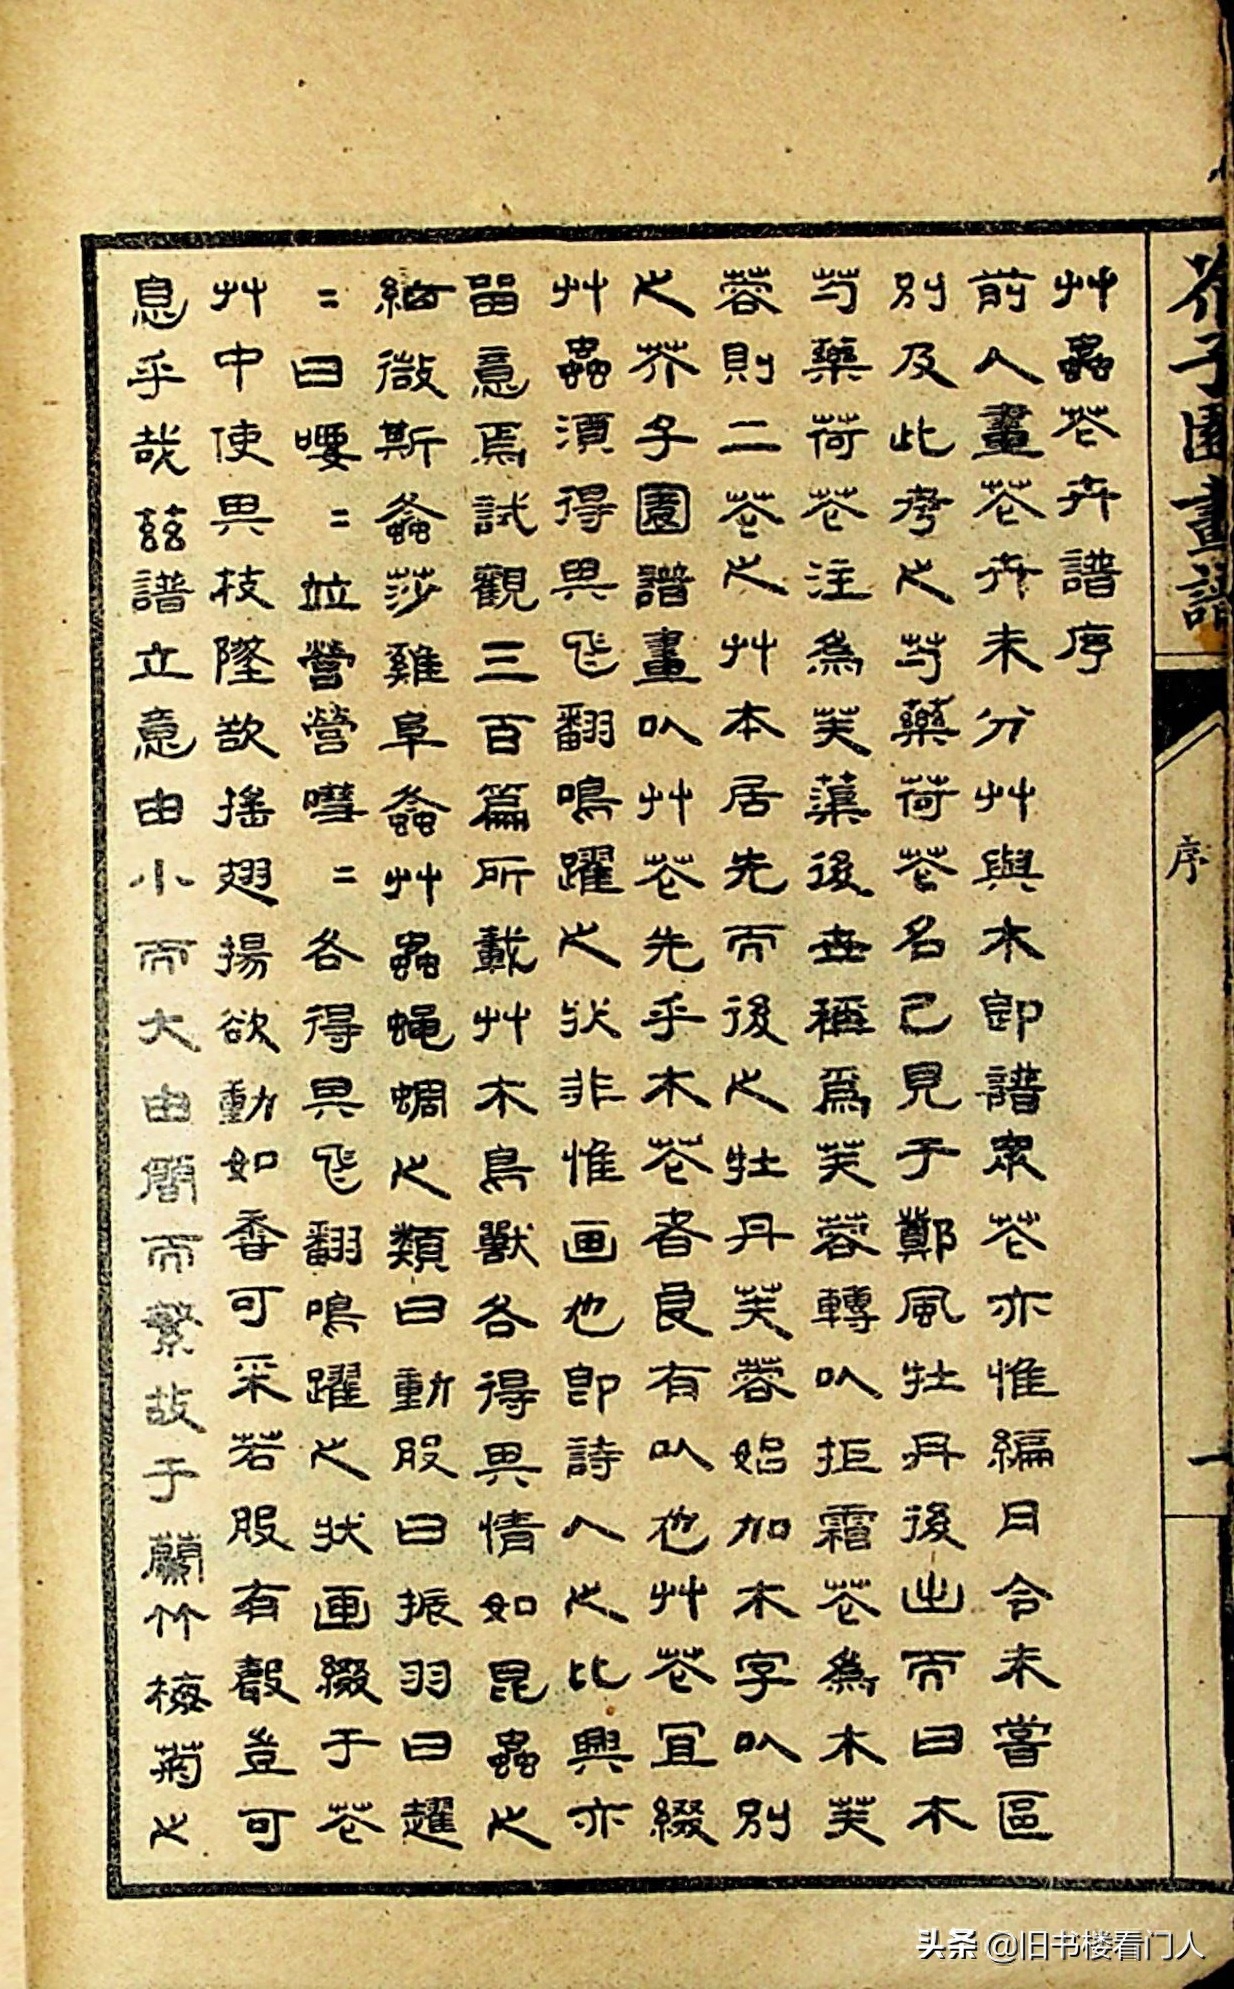 芥子園畫譜
序
一
艸蟲苍卉譜序
前人畫苍卉未分艸與木卽譜眾苍亦惟編月令未嘗區
別及此考之芍藥荷苍名已見于鄭風牡丹後出而曰木
芍藥荷苍注為芙蕖後世稱為芙蓉轉㠯拒霜苍為木芙
蓉則二苍之艸本居先而後之牡丹芙蓉始加木字㠯別
之芥子園譜畫㠯艸苍先乎木苍者良有㠯也艸苍宜綴
艸蟲須得其飛翻鳴躍之狀非惟画也卽詩人之比興亦
畱意焉試觀三百篇所載艸木鳥獸各得其情如昆蟲之
細微斯螽莎雞阜螽艸蟲蠅蜩之類曰動股曰振羽曰趯
〻曰喓〻竝營營嘒〻各得其飛翻鳴躍之狀画綴于苍
艸中使其枝墜欲搖翅揚欲動如香可采若股有聲豈可
息乎哉茲譜立意由小而大由簡而繁故于蘭竹梅菊之
头条 @旧书楼看门人